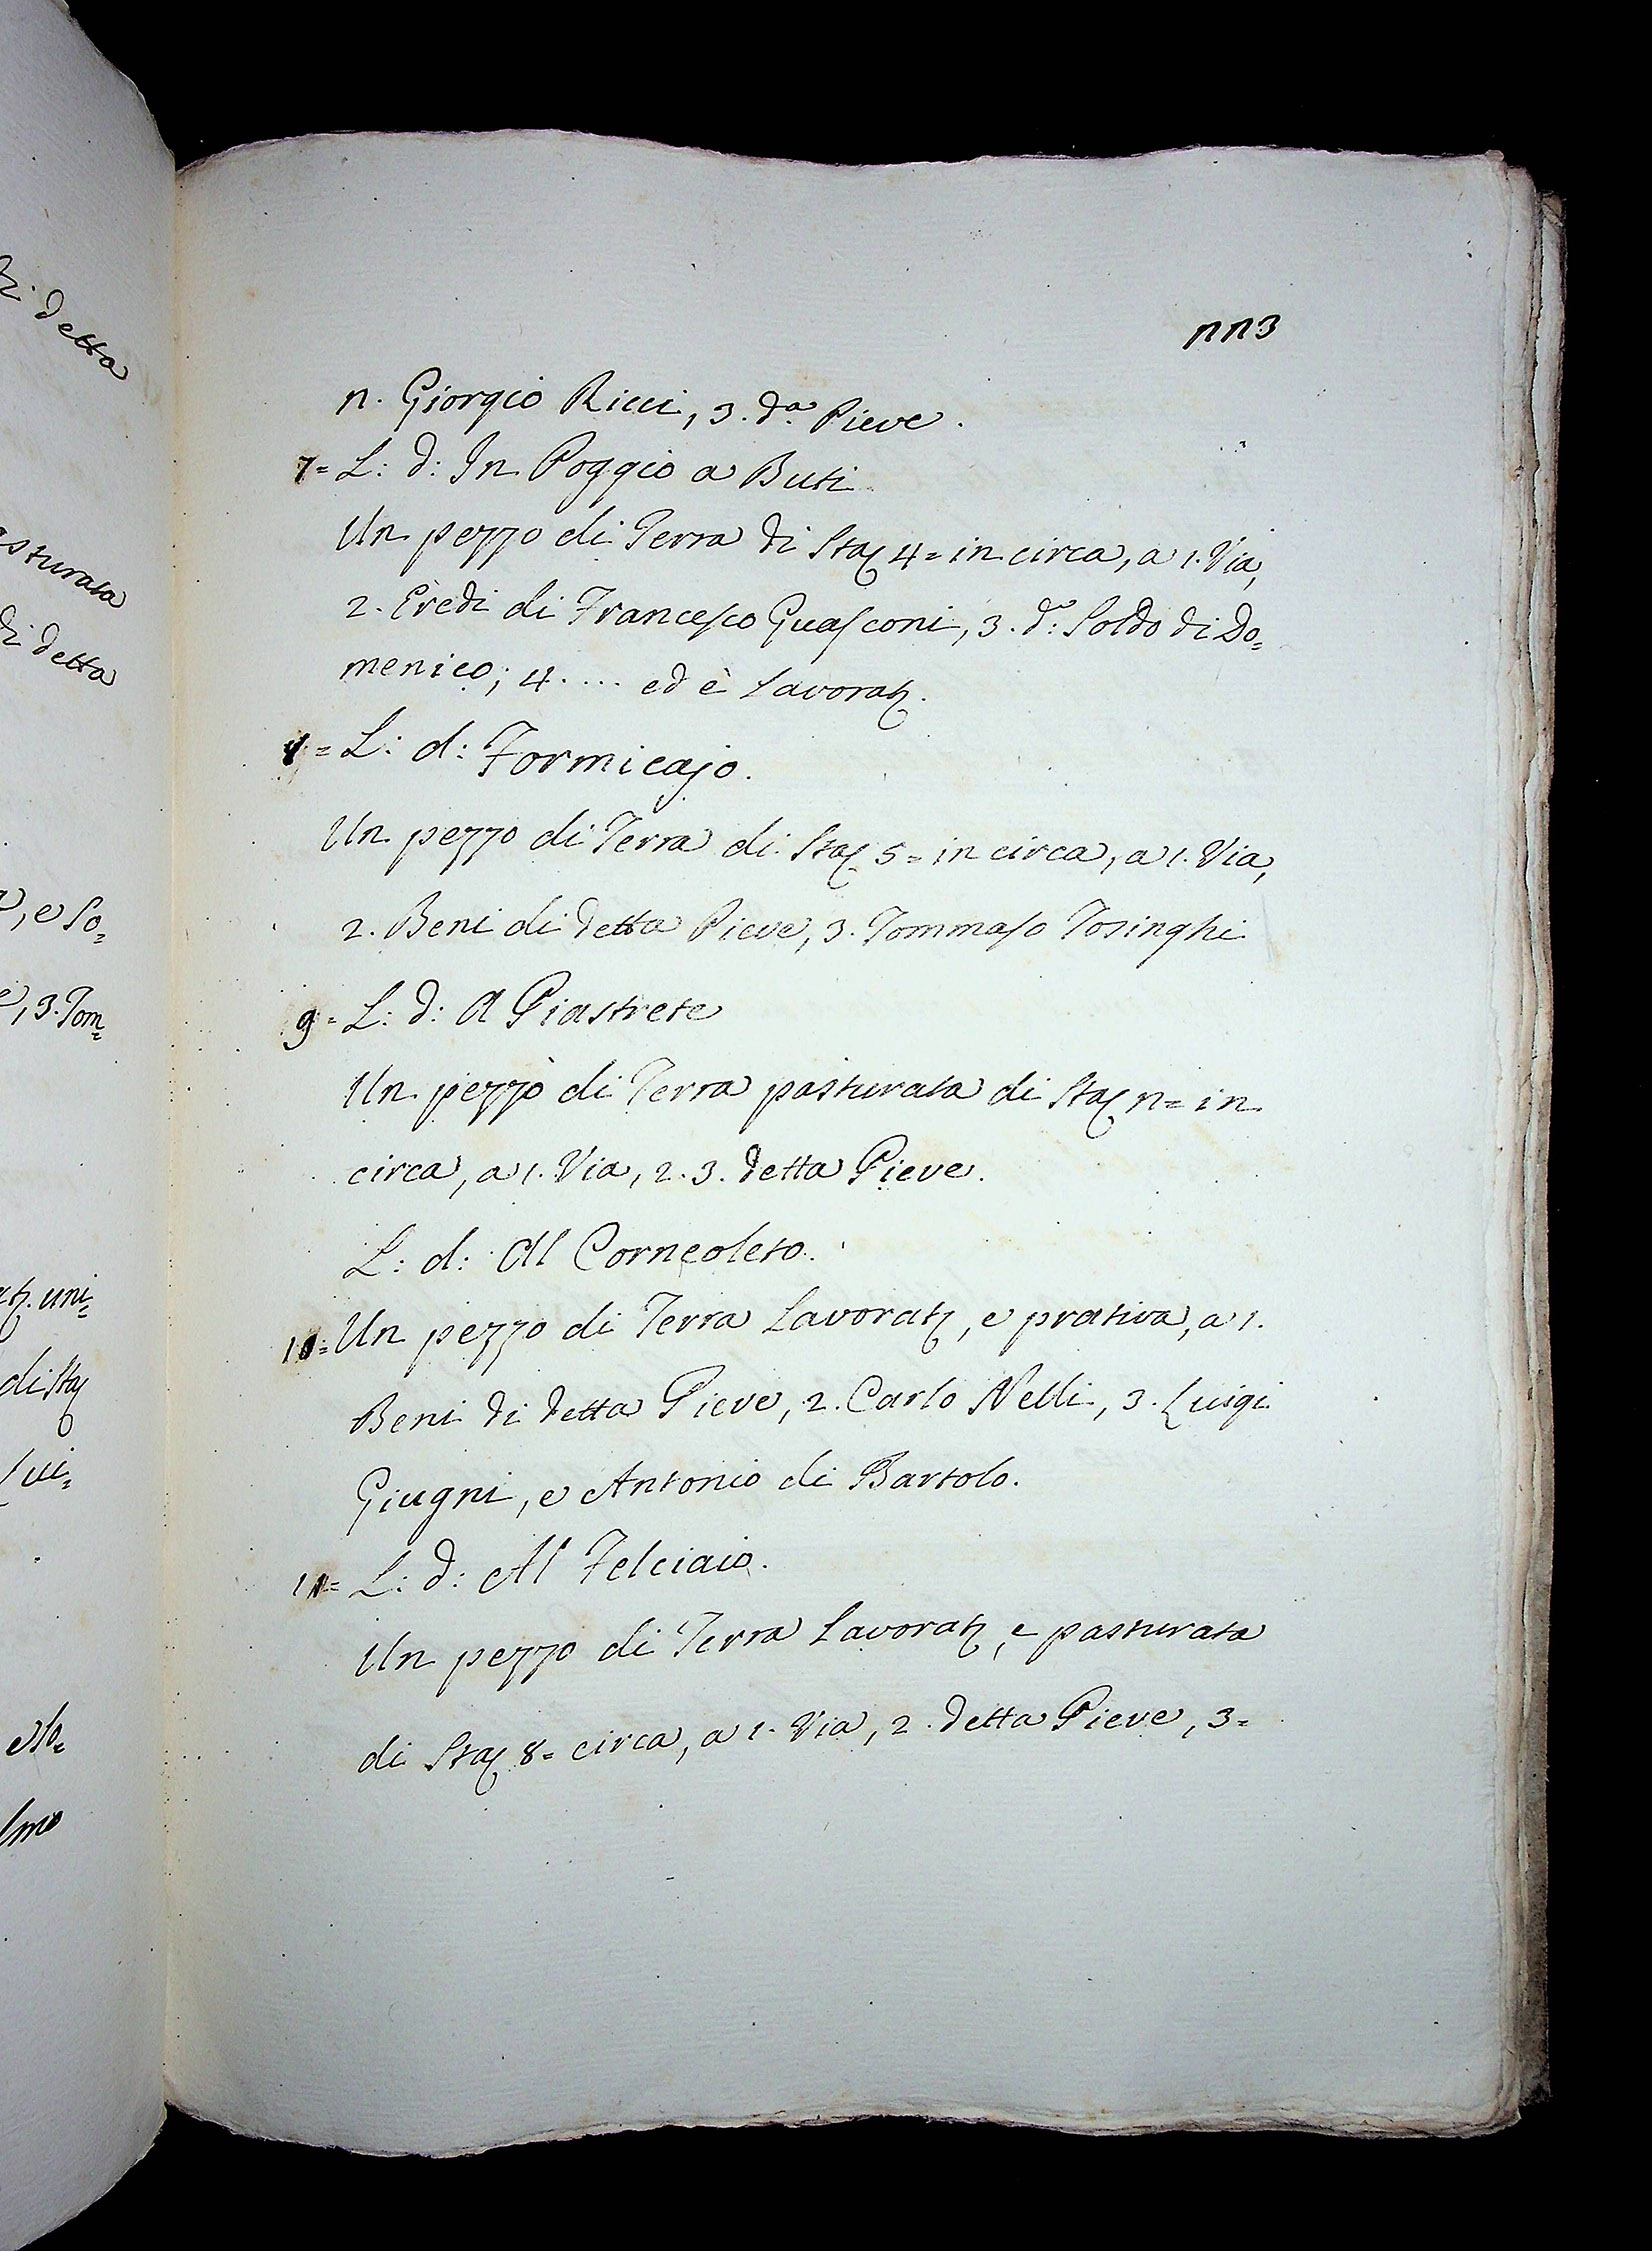 di detta
asturata
di detta
, e So=
, 3. Tom=
uni=
di Sta
Lui=
223
2. Giorgio Ricci, 3. d.a Pieve.
7= L: d: In Poggio a Buti
Un pezzo di Terra di Sta 4= in circa, a 1. Via,
2. Eredi di Francesco Guasconi, 3. d.o Soldo di Do=
menico; 4 .... ed è Lavorat.
8= L: d: Formicajo.
Un pezzo di Terra di Sta 5= in circa, a 1. Via,
2. Beni di detta Pieve, 3. Tommaso Tosinghi
9= L: d: A Piastrete
Un pezzo di Terra pasturata di Sta 2= in
circa, a 1. Via, 2. 3. detta Pieve.
L: d: Al Corneoleto.
10= Un pezzo di Terra Lavorat, e prativa, a 1.
Beni di detta Pieve, 2. Carlo Nelli, 3. Luigi
Giugni, e Antonio di Bartolo.
11= L: d: Al Felciaio.
Un pezzo di Terra Lavorat, e pasturata
di Sta 8= circa, a 1. Via, 2. detta Pieve, 3=